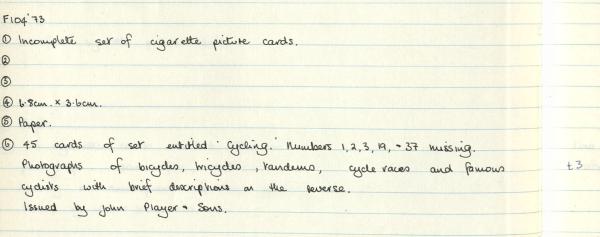 F104'73
① Incomplete set of cigarette picture cards.
②
③
④ 6.8cm. x 3.6cm.
⑤ Paper.
⑥ 45 cards of set entitled 'Cycling.' Numbers 1,2,3,19, + 37 missing.
Photographs of bicycles, tricycles, tandems, cycle races and famous
cyclists with brief descriptions on the reverse.
Issued by John Player + Sons.
£3